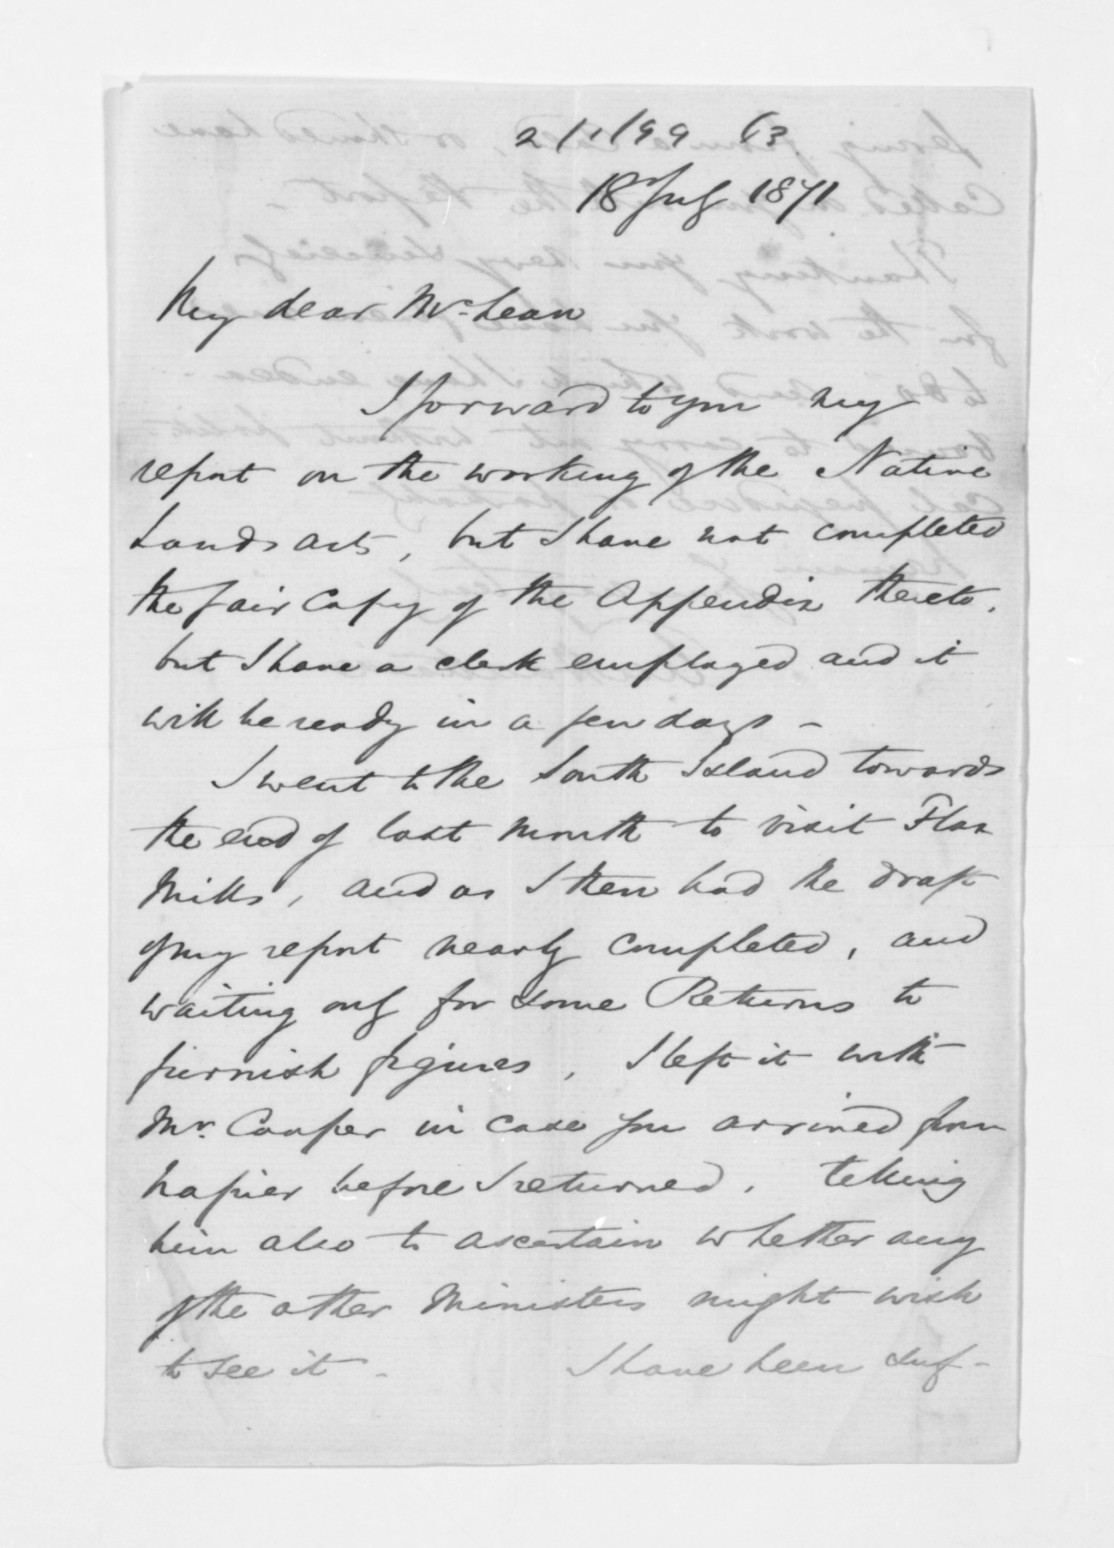 18 July 1871
My dear McLean
I forward to you my
report on the working of the Native
Lands acts, but I have not completed
the fair Copy of the Appendix thereto,
but I have a clerk employed and it
will be ready in a few days –
I went to the South Island towards
the end of last month to visit Flax
Mills, and as I then had the draft
of my report nearly completed, and
waiting only for some Returns to
furnish figures, I left it with
Mr. Cooper in case you arrived from
Napier before I returned, telling
him also to ascertain whether any
of the other Ministers might wish
to see it – I have been suf-